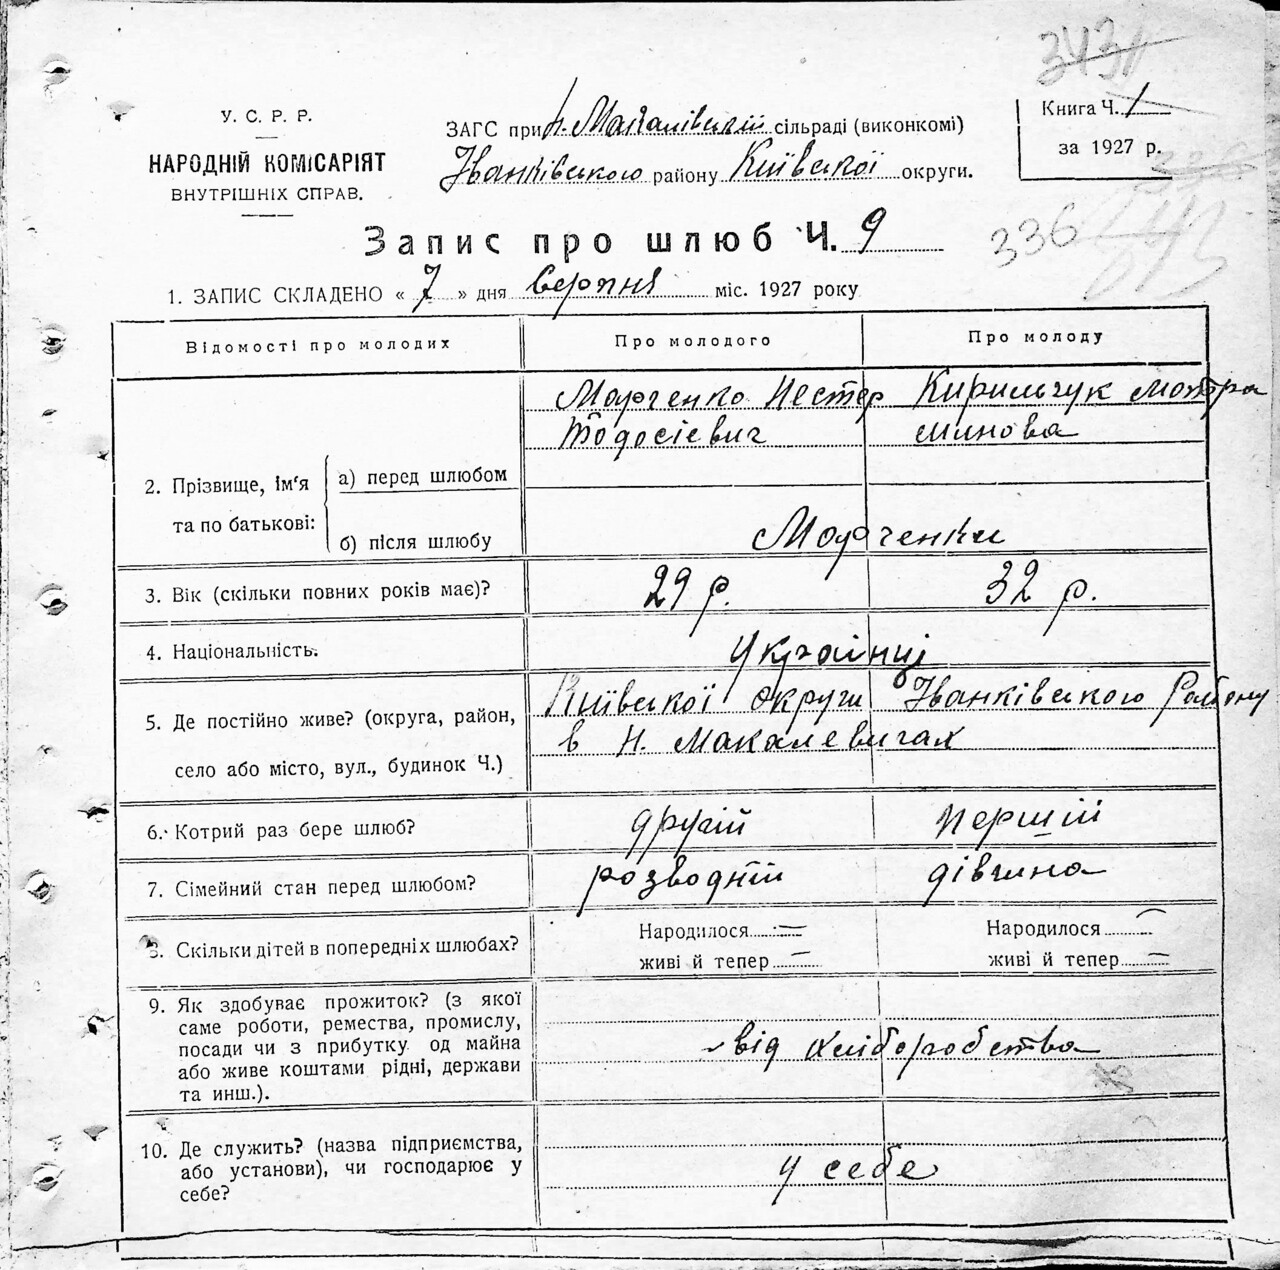 3431
У. С. Р. Р.
НАРОДНІЙ КОМІСАРІЯТ
ВНУТРІШНІХ СПРАВ.
ЗАГС при Н. Макалівській сільраді (виконкомі)
Іванківського району Київської округи.
Книга Ч. 1
за 1927 р.
336
Запис про шлюб Ч. 9
1. ЗАПИС СКЛАДЕНО « 7 » дня Серпня міс. 1927 року
Відомості про молодих
Про молодого
Про молоду
2. Прізвище, ім'я та по батькові:
а) перед шлюбом
Марченко Нестер
Тодосієвич
Кирильчук Мотра
Минова
б) після шлюбу
Марченки
3. Вік (скільки повних років має)?
29 р.
32 р.
4. Національність.
Українці
5. Де постійно живе? (округа, район,
село або місто, вул., будинок Ч.)
Київської округи Іванківського Району
в Н. Макалевичах
6. Котрий раз бере шлюб?
другій
першій
7. Сімейний стан перед шлюбом?
розводній
дівчина
8. Скільки дітей в попередніх шлюбах?
Народилося —
живі й тепер —
Народилося —
живі й тепер —
9. Як здобуває прожиток? (з якої
саме роботи, ремества, промислу,
посади чи з прибутку од майна
або живе коштами рідні, держави
та инш.).
від хліборобства
10. Де служить? (назва підприємства,
або установи), чи господарює у
себе?
у себе